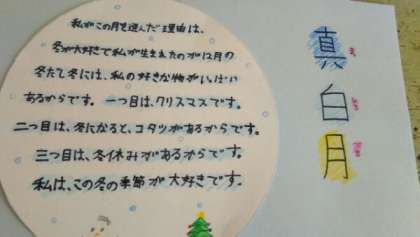 私がこの月を選んだ理由は、
冬が大好きで私が生まれたのが12月の
冬だし冬には、私の好きな物がいっぱい
あるからです。一つ目は、クリスマスです。
二つ目は、冬になると、コタツがあるからです。
三つ目は、冬休みがあるからです。
私は、この冬の季節が大好きです。
真
白
月